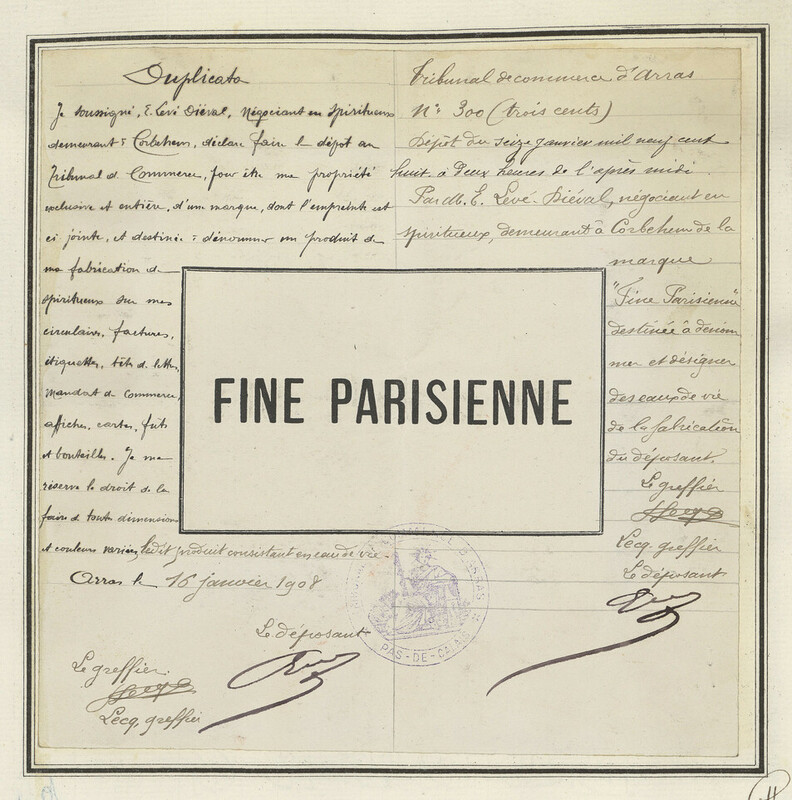 Duplicata
Je soussigné, E. Levé Diéval, Négociant en Spiritueux
demeurant à Corbehem, déclare faire le dépôt au
Tribunal de Commerce, pour être ma propriété
exclusive et entière, d'une marque, dont l'empreinte est
ci jointe, et destinée à dénommer un produit de
ma fabrication de
spiritueux sur mes
circulaires, factures,
étiquettes, têtes de lettres,
Mandats de Commerce,
affiches, cartes, fûts
et bouteilles. Je me
réserve le droit de la
faire de toute dimension
et couleurs variées, ledit produit consistant en eau de vie.
Arras le 16 janvier 1908
Le déposant
Le greffier
Lecq, greffier
FINE PARISIENNE
Tribunal de commerce d'Arras
N° 300 (trois cents)
Dépôt du seize janvier mil neuf cent
huit à deux heures de l'après midi.
Par M. E. Levé-Diéval, négociant en
spiritueux, demeurant à Corbehem de la
marque
"Fine Parisienne"
destinée à dénom
mer et désigner
des eaux de vie
de la fabrication
du déposant.
Le greffier
Lecq. greffier
Le déposant
PAS-DE-CALAIS